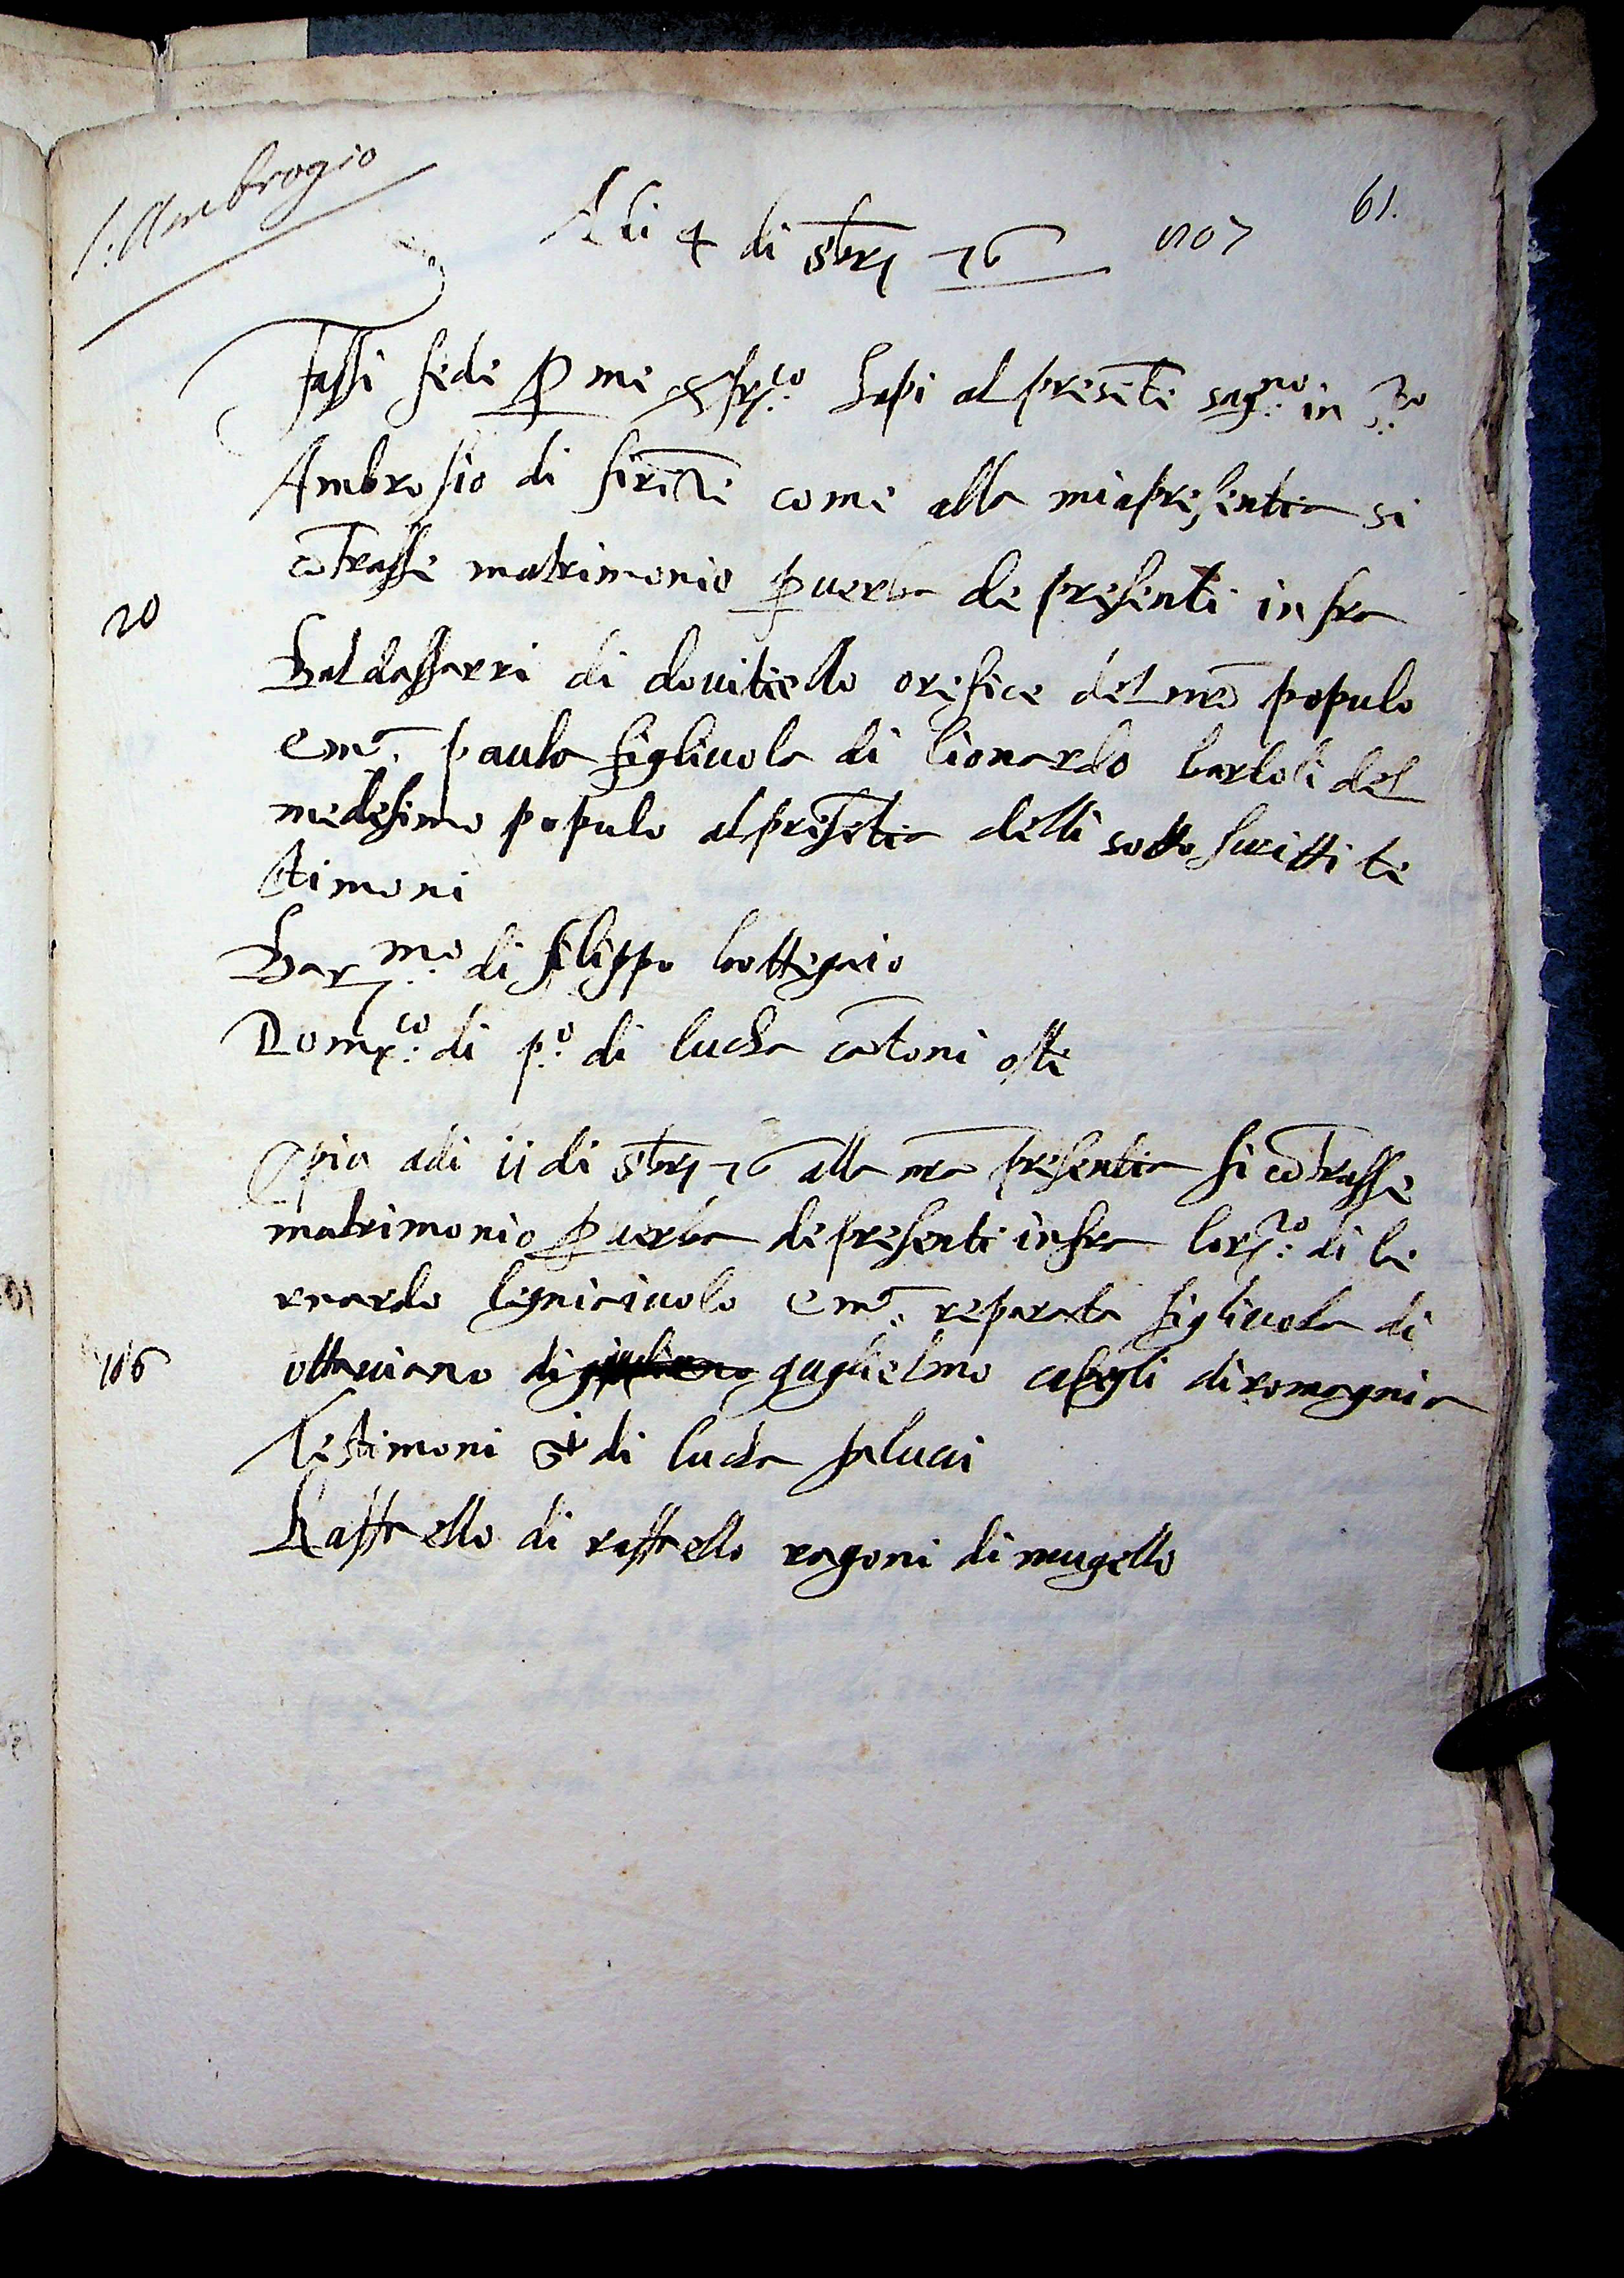 S. Ambrogio
61.
A di 4 di 8brẽ 76
Fassi fede p me Sr frc.o Lapi al presẽte sag.no in S.to
Ambrosio di firẽze come alla mia presentia si
cõtrasse matrimonio p verba de presenti infra
20
Baldassarri di dovitiello orefice del mẽ populo
e m.a paula figliuola di lionardo bartoli del
medesimo populo alpresẽtia delli sotto scritti te
stimoni
Bar.mo di filippo bottegaio
Dom.co di p.o di lucha cãtoni oste
E piu adi 11 di 8brẽ 76 alla mia presentia si cõtrasse
matrimonio p verba de presenti infra lor.zo di be
rnardo legniaiuolo e m.a reparata figliuola di
106
ottaviano di giuliano guglielmo di romagnia
Testimoni di lucha paluci
Raffaello di raffaello ragoni di mugello